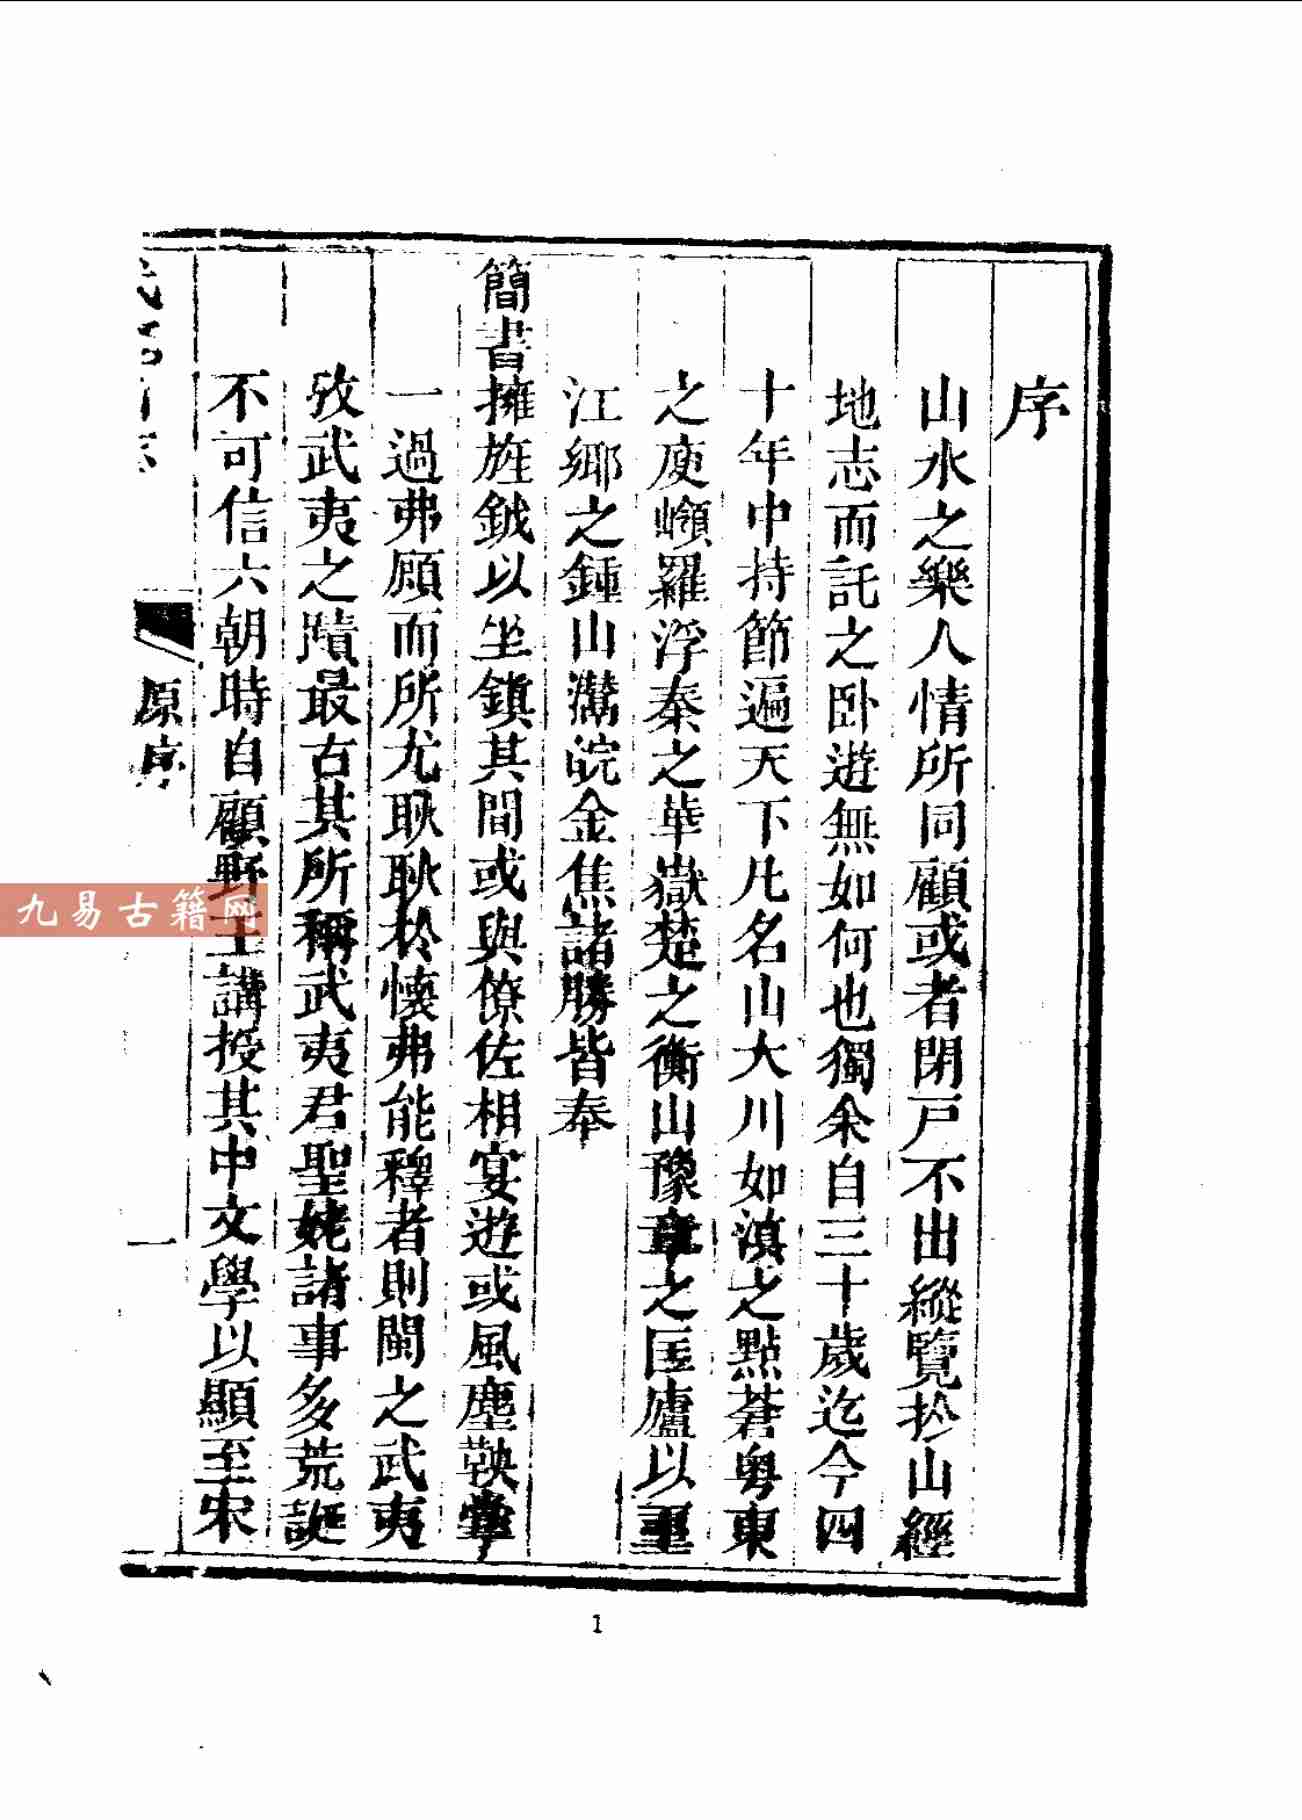 序
山水之樂人情所同顧或者閉戸不出縱覽於山經
地志而託之卧遊無如何也獨余自三十歲迄今四
十年中持節遍天下凡名山大川如滇之點蒼粤東
之庾嶺羅浮秦之華嶽楚之衡山豫章之匡廬以至
江鄉之鍾山灊皖金焦諸勝皆奉
簡書擁旌鉞以坐鎮其間或與僚佐相宴遊或風塵鞅掌
一過弗顧而所尤耿耿於懷弗能釋者則閩之武夷
攷武夷之蹟最古其所稱武夷君聖姥諸事多荒誕
不可信六朝時自顧野王講授其中文學以顯至宋
原序
一
九易古籍网
1